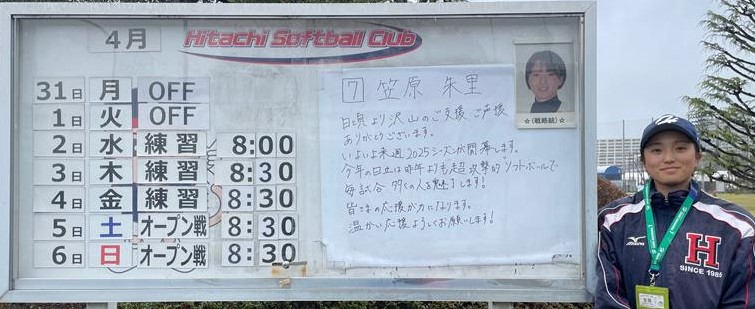 4月
Hitachi Softball Club
31日 月 OFF
1日 火 OFF
2日 水 練習 8:00
3日 木 練習 8:30
4日 金 練習 8:30
5日 土 オープン戦 8:30
6日 日 オープン戦 8:30
7 笠原 朱里
日頃より沢山のご支援 ご声援
ありがとうございます。
いよいよ来週 2025シーズンが開幕します。
今年の日立は昨年よりも超攻撃的ソフトボールで
毎試合 多くの人を魅了します!
皆さまの応援が力になります。
温かい応援よろしくお願いします!
☆(戦略統)☆
MIZUNO
H
SINCE 1985